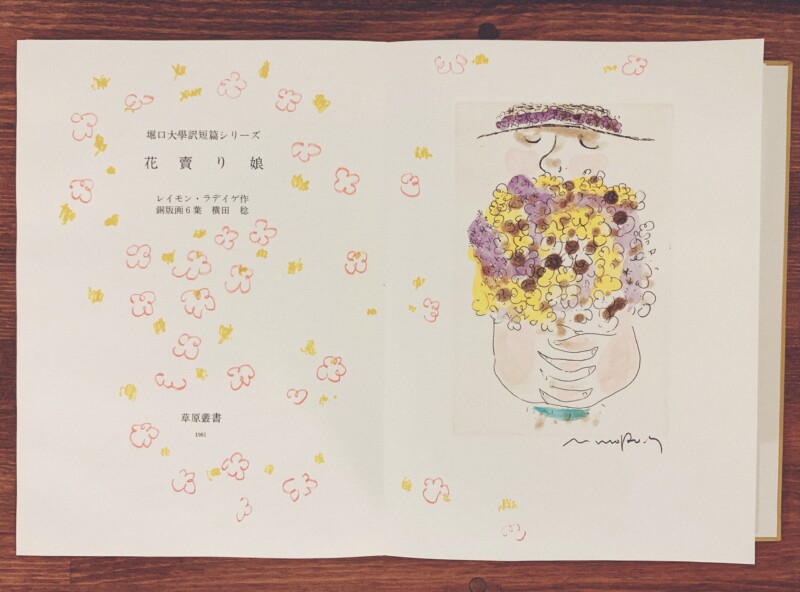 堀口大學訳短篇シリーズ
花賣り娘
レイモン・ラデイゲ作
銅版画6葉 横田 稔
草原叢書
1981